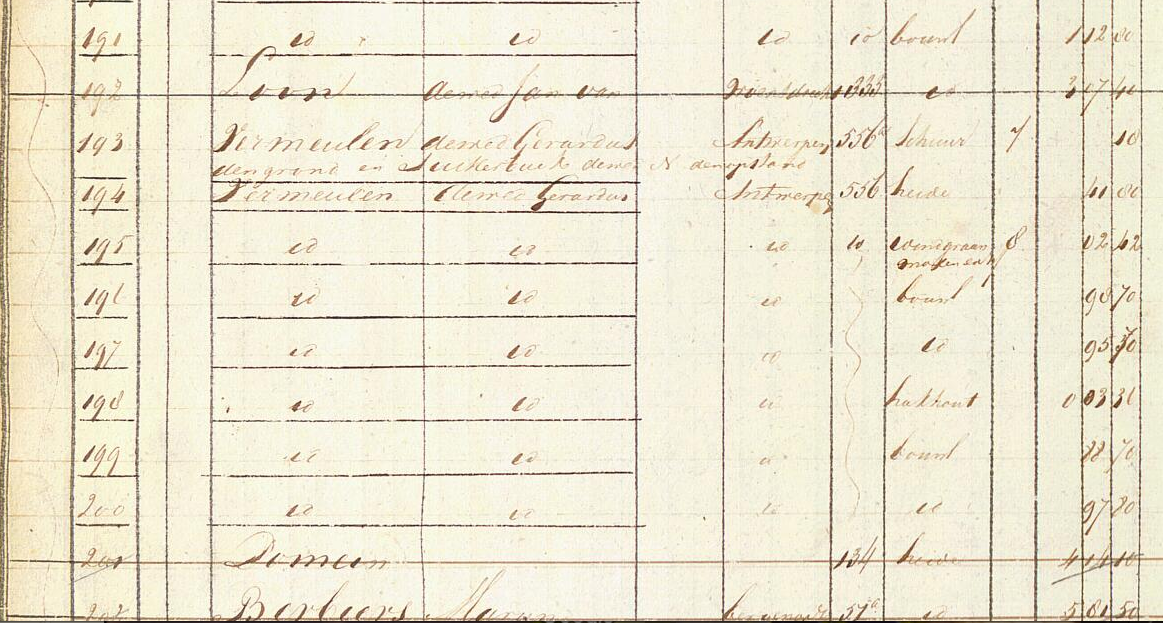 191 id id id id bouwl 1 12 80
192 Loon de wed Jan van id 3 07 40
193 Vermeulen de wed Gerardus Antwerpen 556a schuur 7 18
den grond en de wed N den opstand
194 Vermeulen de wed Gerardus Antwerpen 556 heide 41 80
195 id id id id windgraan 8 02 42
196 id id id bouwl 98 70
197 id id id id 95 70
198 id id id hakhout 0 03 31
199 id id id bouwl 88 70
200 id id id id 97 80
201 Domein 134 heide 4 14 10
202 57a id 5 81 50